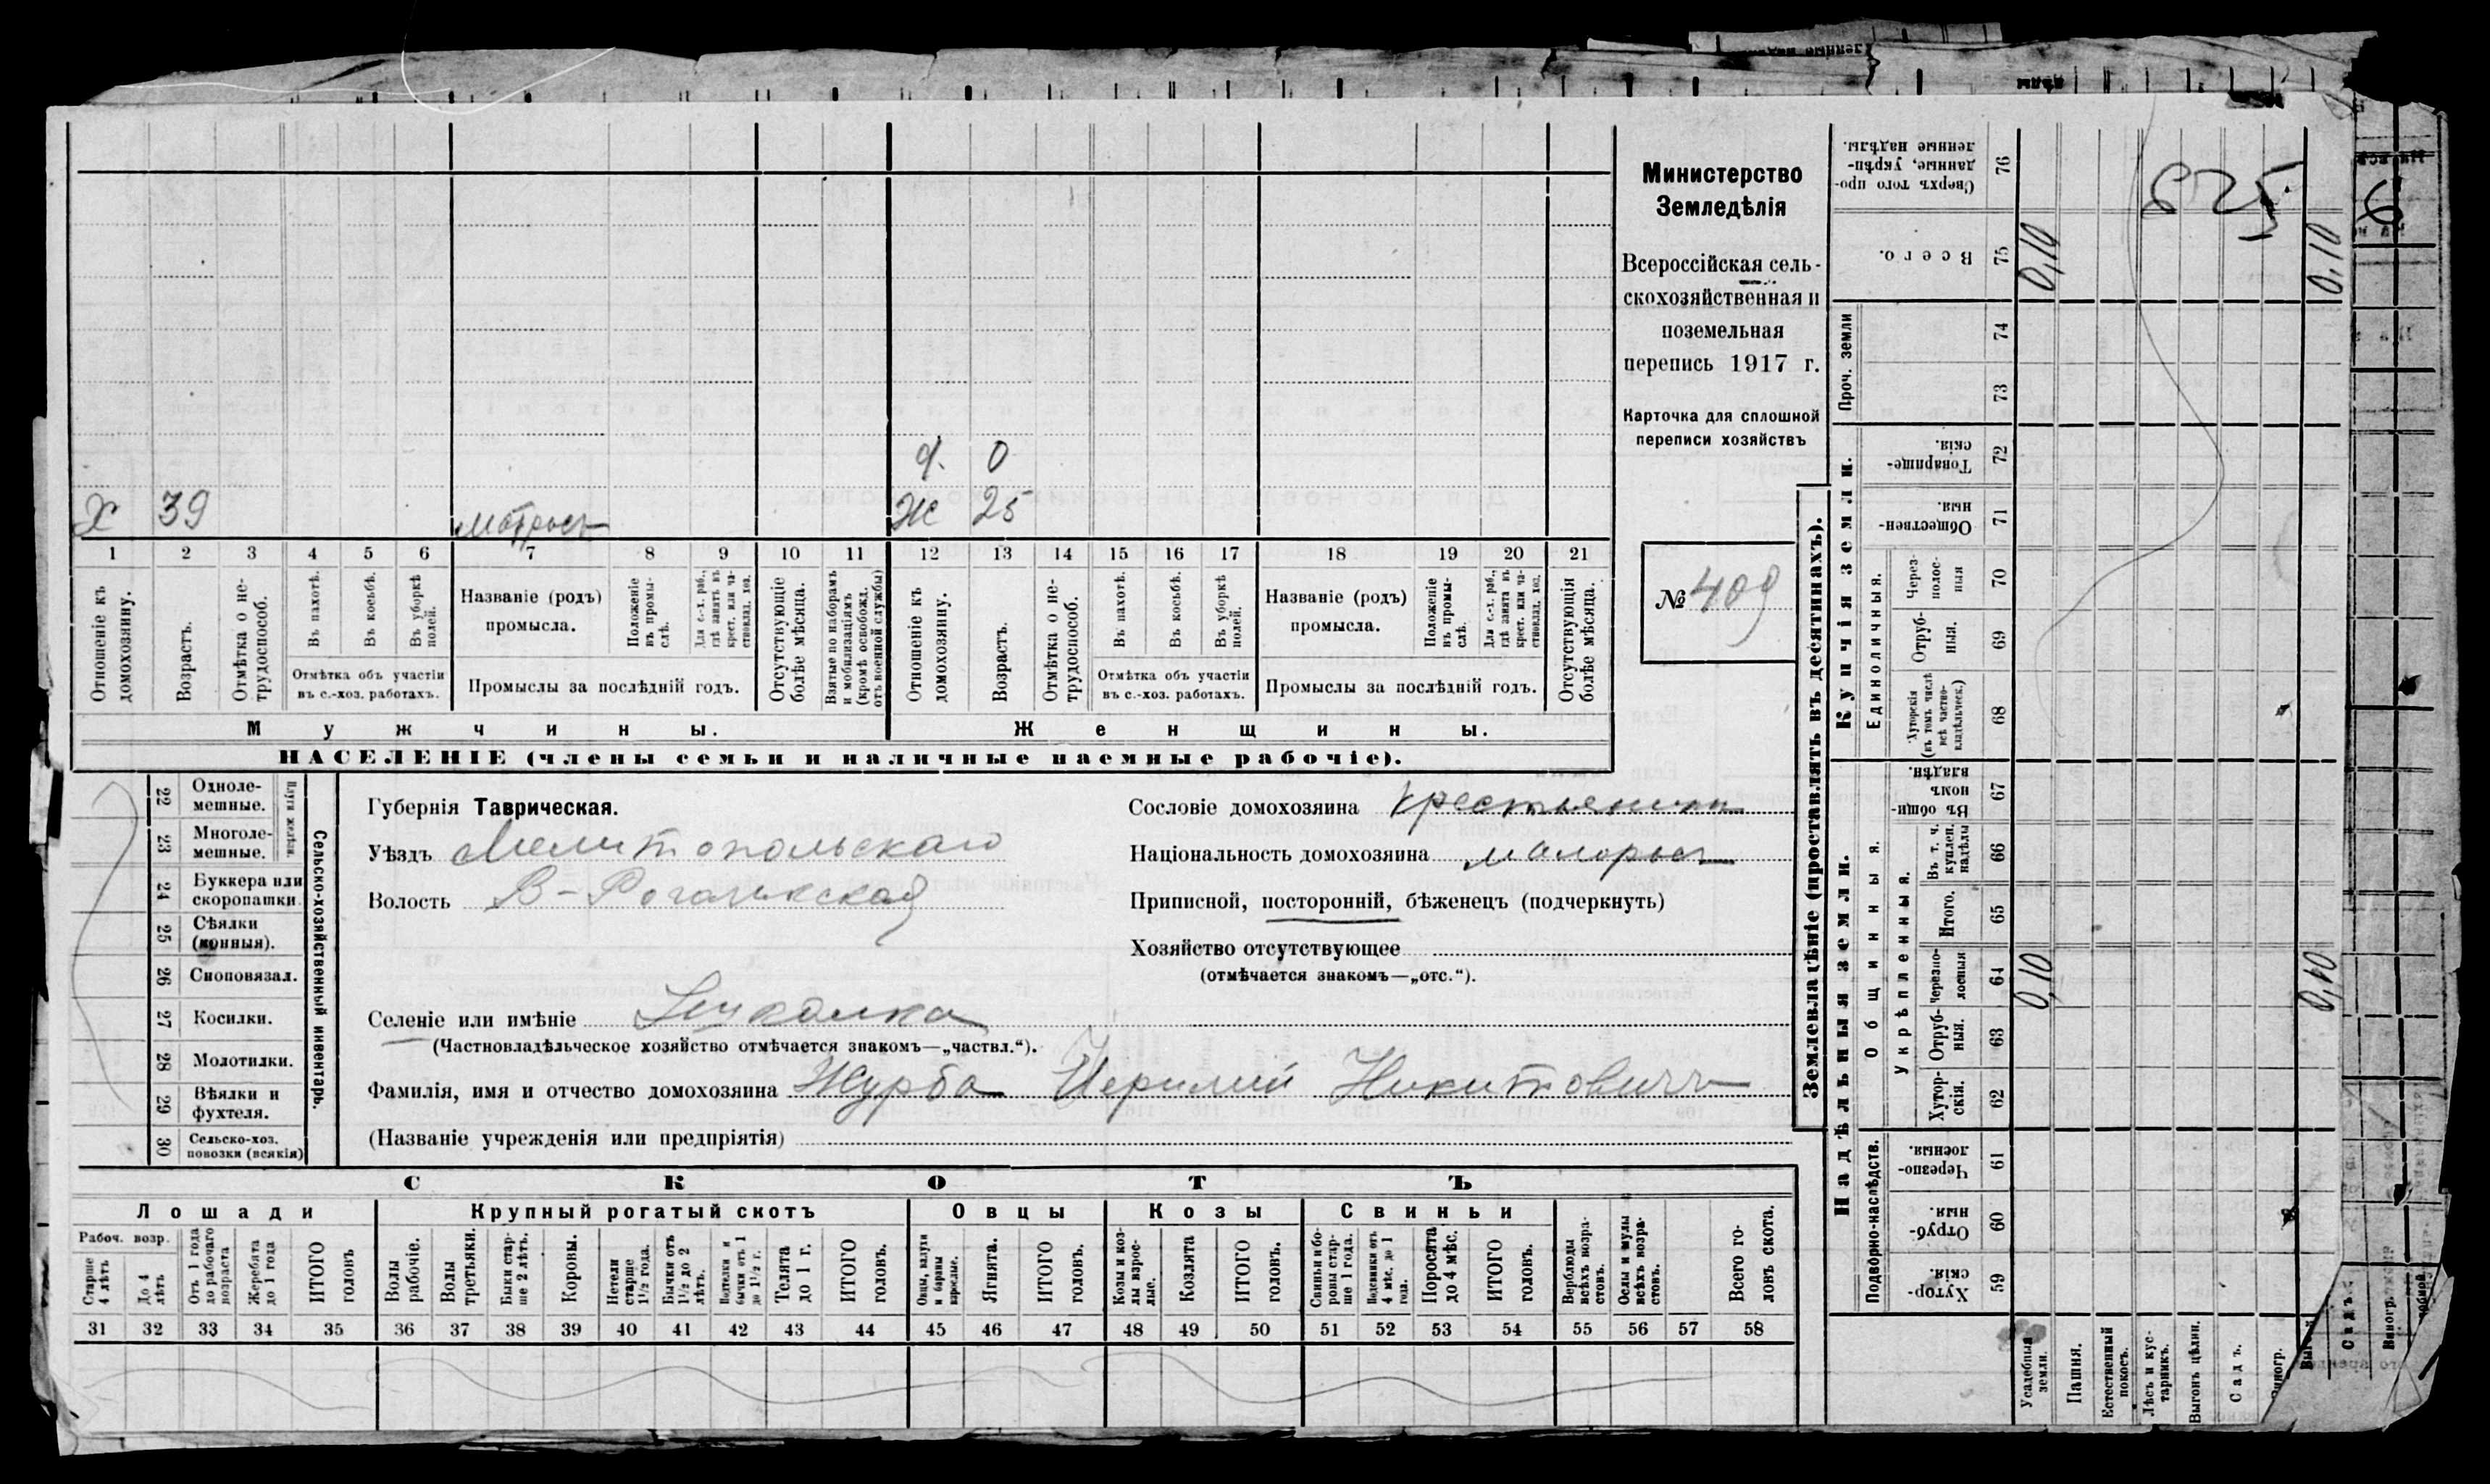 Министерство
Земледѣлія
Всероссійская сель-
скохозяйственная и
поземельная
перепись 1917 г.
Карточка для сплошной
переписи хозяйствъ
№ 409
ф. 0
Х 39 матросъ Ж 25
1 2 3 4 5 6 7 8 9 10 11 12 13 14 15 16 17 18 19 20 21
Отношеніе къ домохозяину.
Возрастъ.
Отмѣтка о не-трудоспособ.
Въ пахотѣ.
Въ косьбѣ.
Въ уборкѣ полей.
Отмѣтка объ участіи
въ с.-хоз. работахъ.
Названіе (родъ)
промысла.
Положеніе въ промы-слѣ.
Для с.-х. раб., гдѣ занятъ въ крест. или ча-стновлад. хоз.
Промыслы за послѣдній годъ.
Отсутствующіе болѣе мѣсяца.
Взятые по наборамъ и мобилизаціямъ (кромѣ освобожд. отъ военной службы)
Отношеніе къ домохозяину.
Возрастъ.
Отмѣтка о не-трудоспособ.
Въ пахотѣ.
Въ косьбѣ.
Въ уборкѣ полей.
Отмѣтка объ участіи
въ с.-хоз. работахъ.
Названіе (родъ)
промысла.
Положеніе въ промы-слѣ.
Для с.-х. раб., гдѣ занята въ крест. или ча-стновлад. хоз.
Промыслы за послѣдній годъ.
Отсутствующія болѣе мѣсяца.
Мужчины. Женщины.
НАСЕЛЕНІЕ (члены семьи и наличные наемные рабочіе).
Сельско-хозяйственный инвентарь.
Плуги желѣзн.
22 Одноле-
мешные.
23 Многоле-
мешные.
24 Буккера или
скоропашки.
25 Сѣялки
(конныя).
26 Сноповязал.
27 Косилки.
28 Молотилки.
29 Вѣялки и
фухтеля.
30 Сельско-хоз.
повозки (всякія)
Губернія Таврическая.
Уѣздъ Мелитопольскаго
Волость В-Рогачикская
Селеніе или имѣніе
(Частновладѣльческое хозяйство отмѣчается знакомъ—„частвл.“).
Фамилія, имя и отчество домохозяина Журба Иеримий Никитковичъ
(Названіе учрежденія или предпріятія)
Сословіе домохозяина крестьянинъ
Національность домохозяина малоросъ
Приписной, посторонній, бѣженецъ (подчеркнуть)
Хозяйство отсутствующее
(отмѣчается знакомъ—„отс.“).
СКОТЪ
Лошади Крупный рогатый скотъ Овцы Козы Свиньи
Рабоч. возр.
Старше 4 лѣтъ
До 4 лѣтъ
Отъ 1 года до рабочаго возраста
Жеребята до 1 года
ИТОГО головъ
Волы рабочіе.
Волы третьяки.
Быки стар-ше 2 лѣтъ.
Коровы.
Нетели старше 1½ года.
Бычки отъ 1½ до 2 лѣтъ.
Подтелки и бычки отъ 1 до 1½ г.
Телята до 1 г.
ИТОГО головъ.
Овцы, валухи и бараны взрослые.
Ягнята.
ИТОГО головъ.
Козы и коз-лы взрос-лые.
Козлята
ИТОГО головъ.
Свиньи и бо-ровы стар-ше 1 года.
Подсвинки отъ 4 мѣс. до 1 года.
Поросята до 4 мѣс.
ИТОГО головъ.
Верблюды всѣхъ возра-стовъ.
Ослы и мулы всѣхъ возра-стовъ.
Всего го-ловъ скота.
31 32 33 34 35 36 37 38 39 40 41 42 43 44 45 46 47 48 49 50 51 52 53 54 55 56 57 58
Землевладѣніе (проставлять въ десятинахъ).
Надѣльныя земли. Купчія земли. Проч. земли
Подворно-наслѣдств.
Общинныя.
Укрѣпленныя.
Единоличныя.
Хутор-скія. 59
Отруб-ныя. 60
Черезпо-лосныя. 61
Хутор-скія. 62
Отруб-ныя. 63
Черезпо-лосныя 64
Итого. 65
Въ т. ч. куплен. надѣлы 66
Въ общин-номъ владѣн. 67
Хуторскія (въ томъ числѣ всѣ частно-владѣльческ.) 68
Отруб-ныя. 69
Через-полос-ныя 70
Обществен-ныя. 71
Товарище-скія. 72
73
74
Всего. 75
Сверхъ того про-данные, укрѣп-ленные надѣлы. 76
0,10
0,10
0,10
0,10
Усадебныя земли.
Пашня.
Естественный покосъ.
Лѣсъ и кус-тарникъ.
Выгонъ цѣлин.
Садъ.
Виногр.
Садъ.
Виногр.